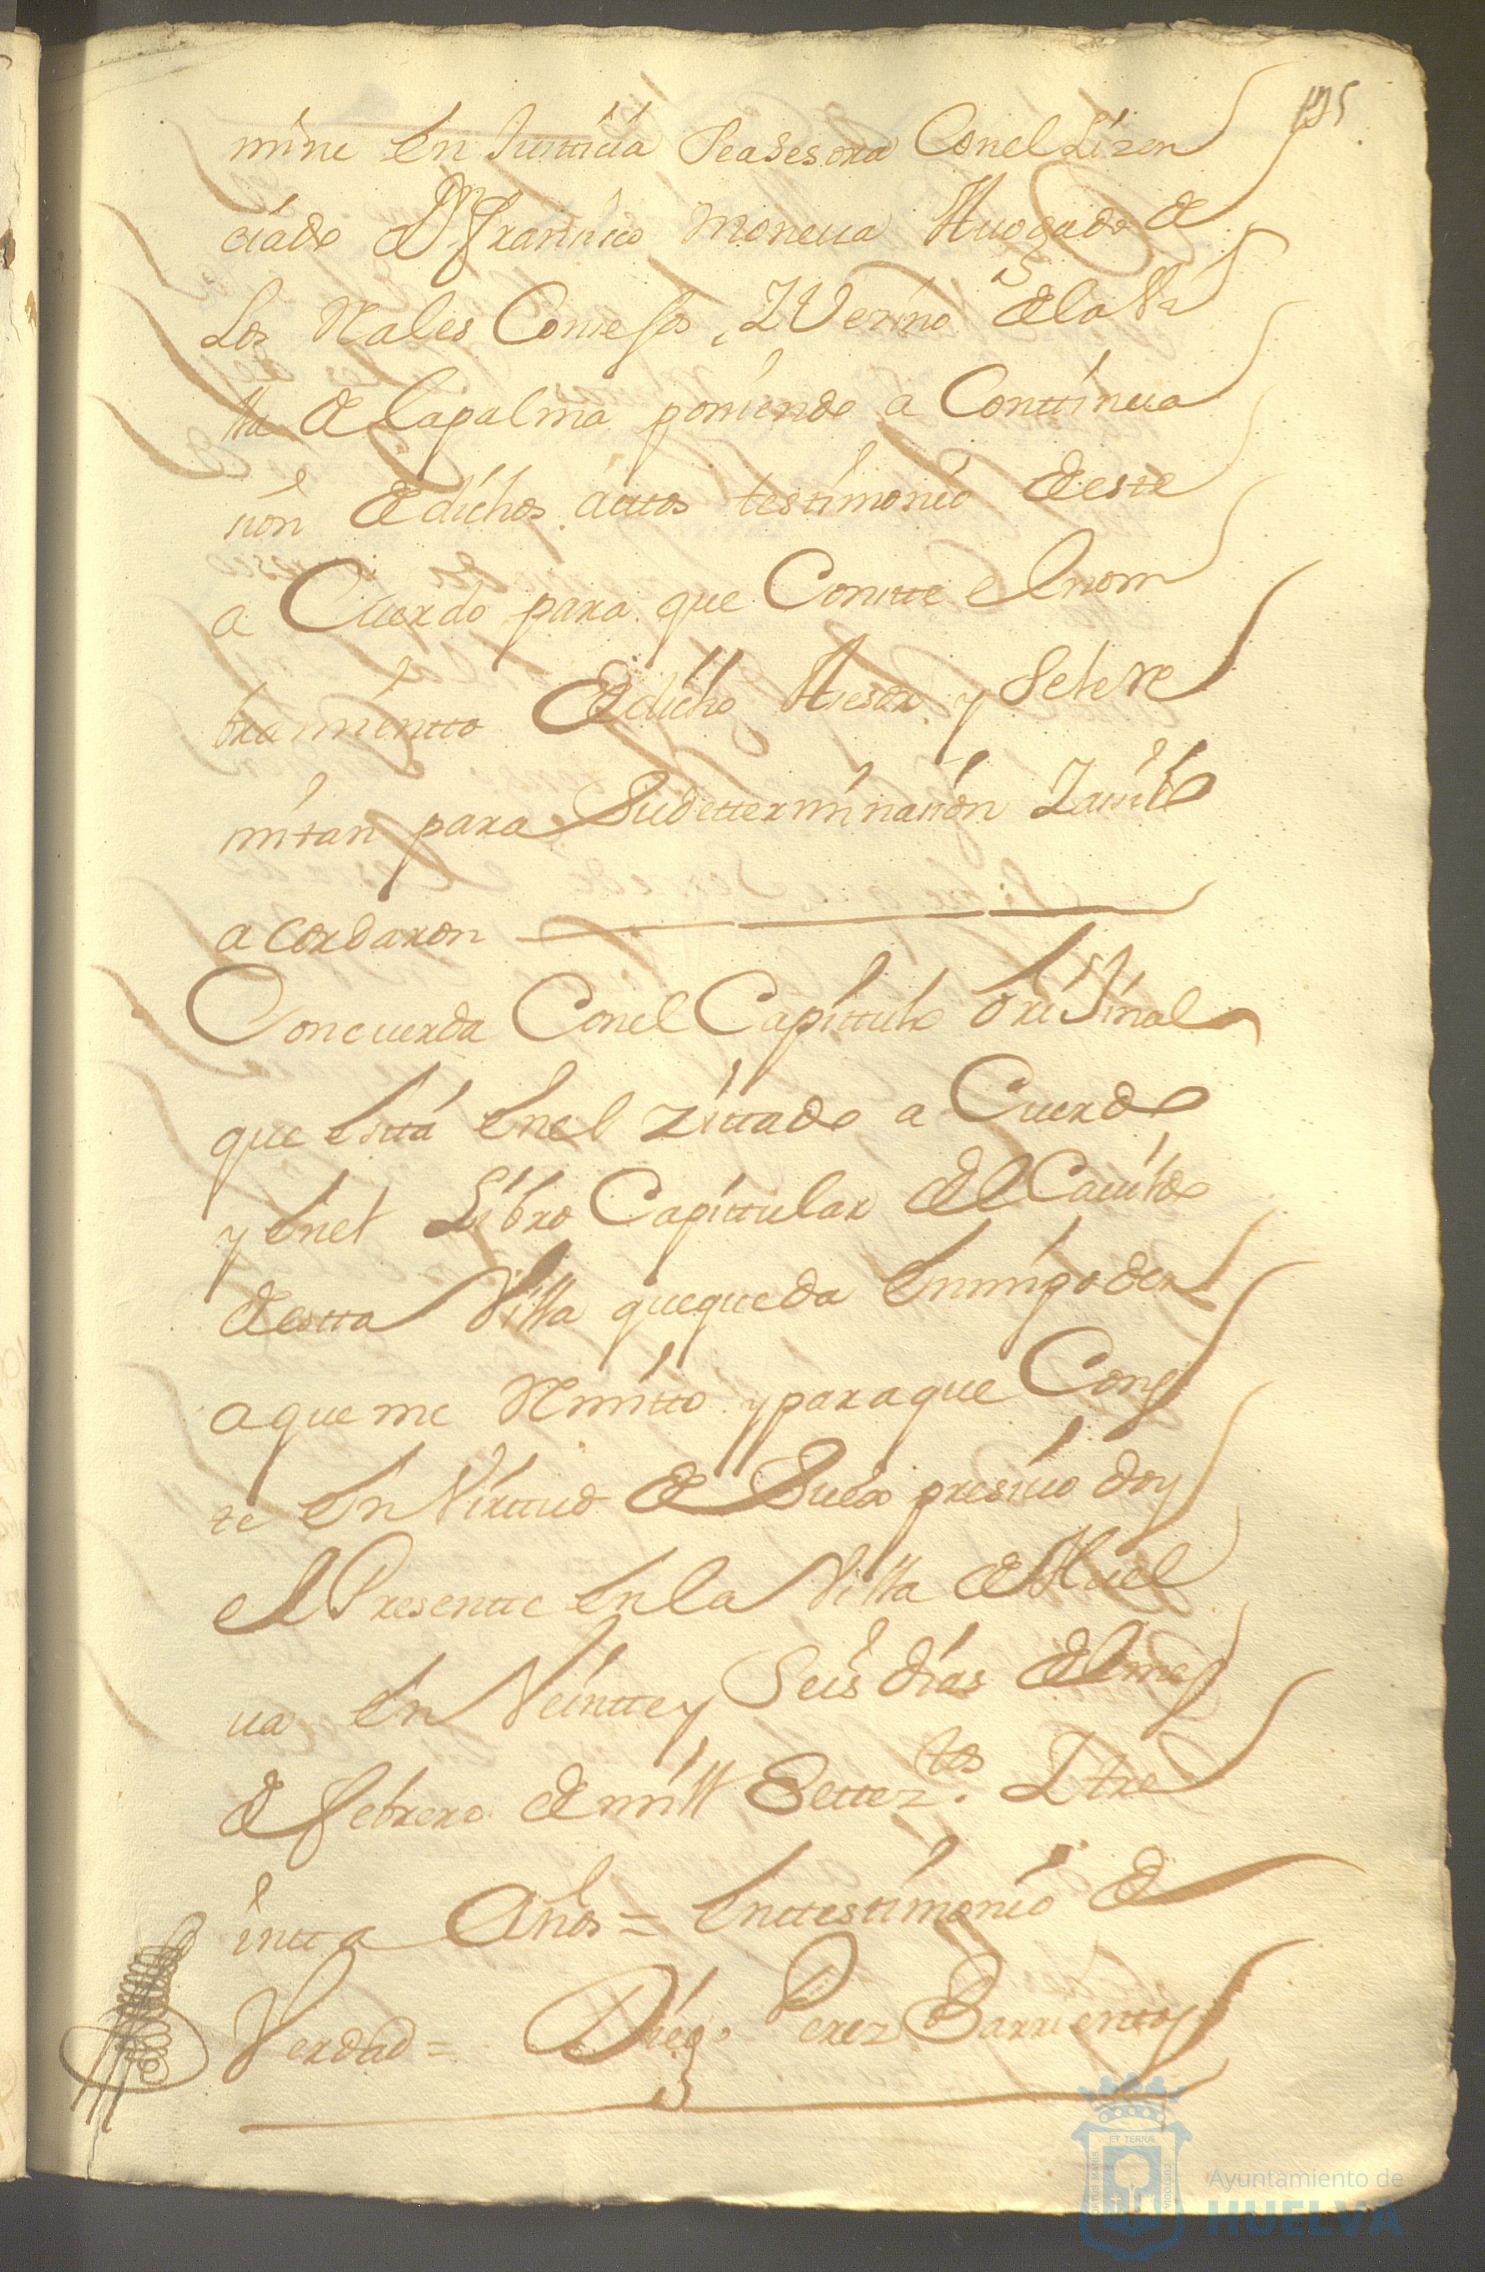 195
mine en Justticia Seasesora Conel Lizen
ciado Dn Francisco Moneua Auogado de
Los Rales Consejos, Y Vezino dela Vi
lla de Lapalma poniendo a Conttinua
cion de dichos autos testimonio deste
a Cuerdo para que Constte el nom
bramientto de dicho Asesor y Se le Re
mitan para Sudetterminacion Y assi lo
acordaron
Concuerda Conel Capittulo oriJinal
que estta enel zittado a Cuerdo
y enel Libro Capittular del Cauildo
destta Villa quequeda enmipoder
aque me Remitto yparaque Cons
te en Virttud de Su
el Presentte en la Villa de Huel
ua en Veintte y Seis dias del mes
de febrero de mill Settez.tos Y tre
intta Años = Enttestimonio de
Verdad = Diego Perez Barrientos
ET TERRÆ
PORTUS MARIS
CUSTODIA
Ayuntamiento de
HUELVA